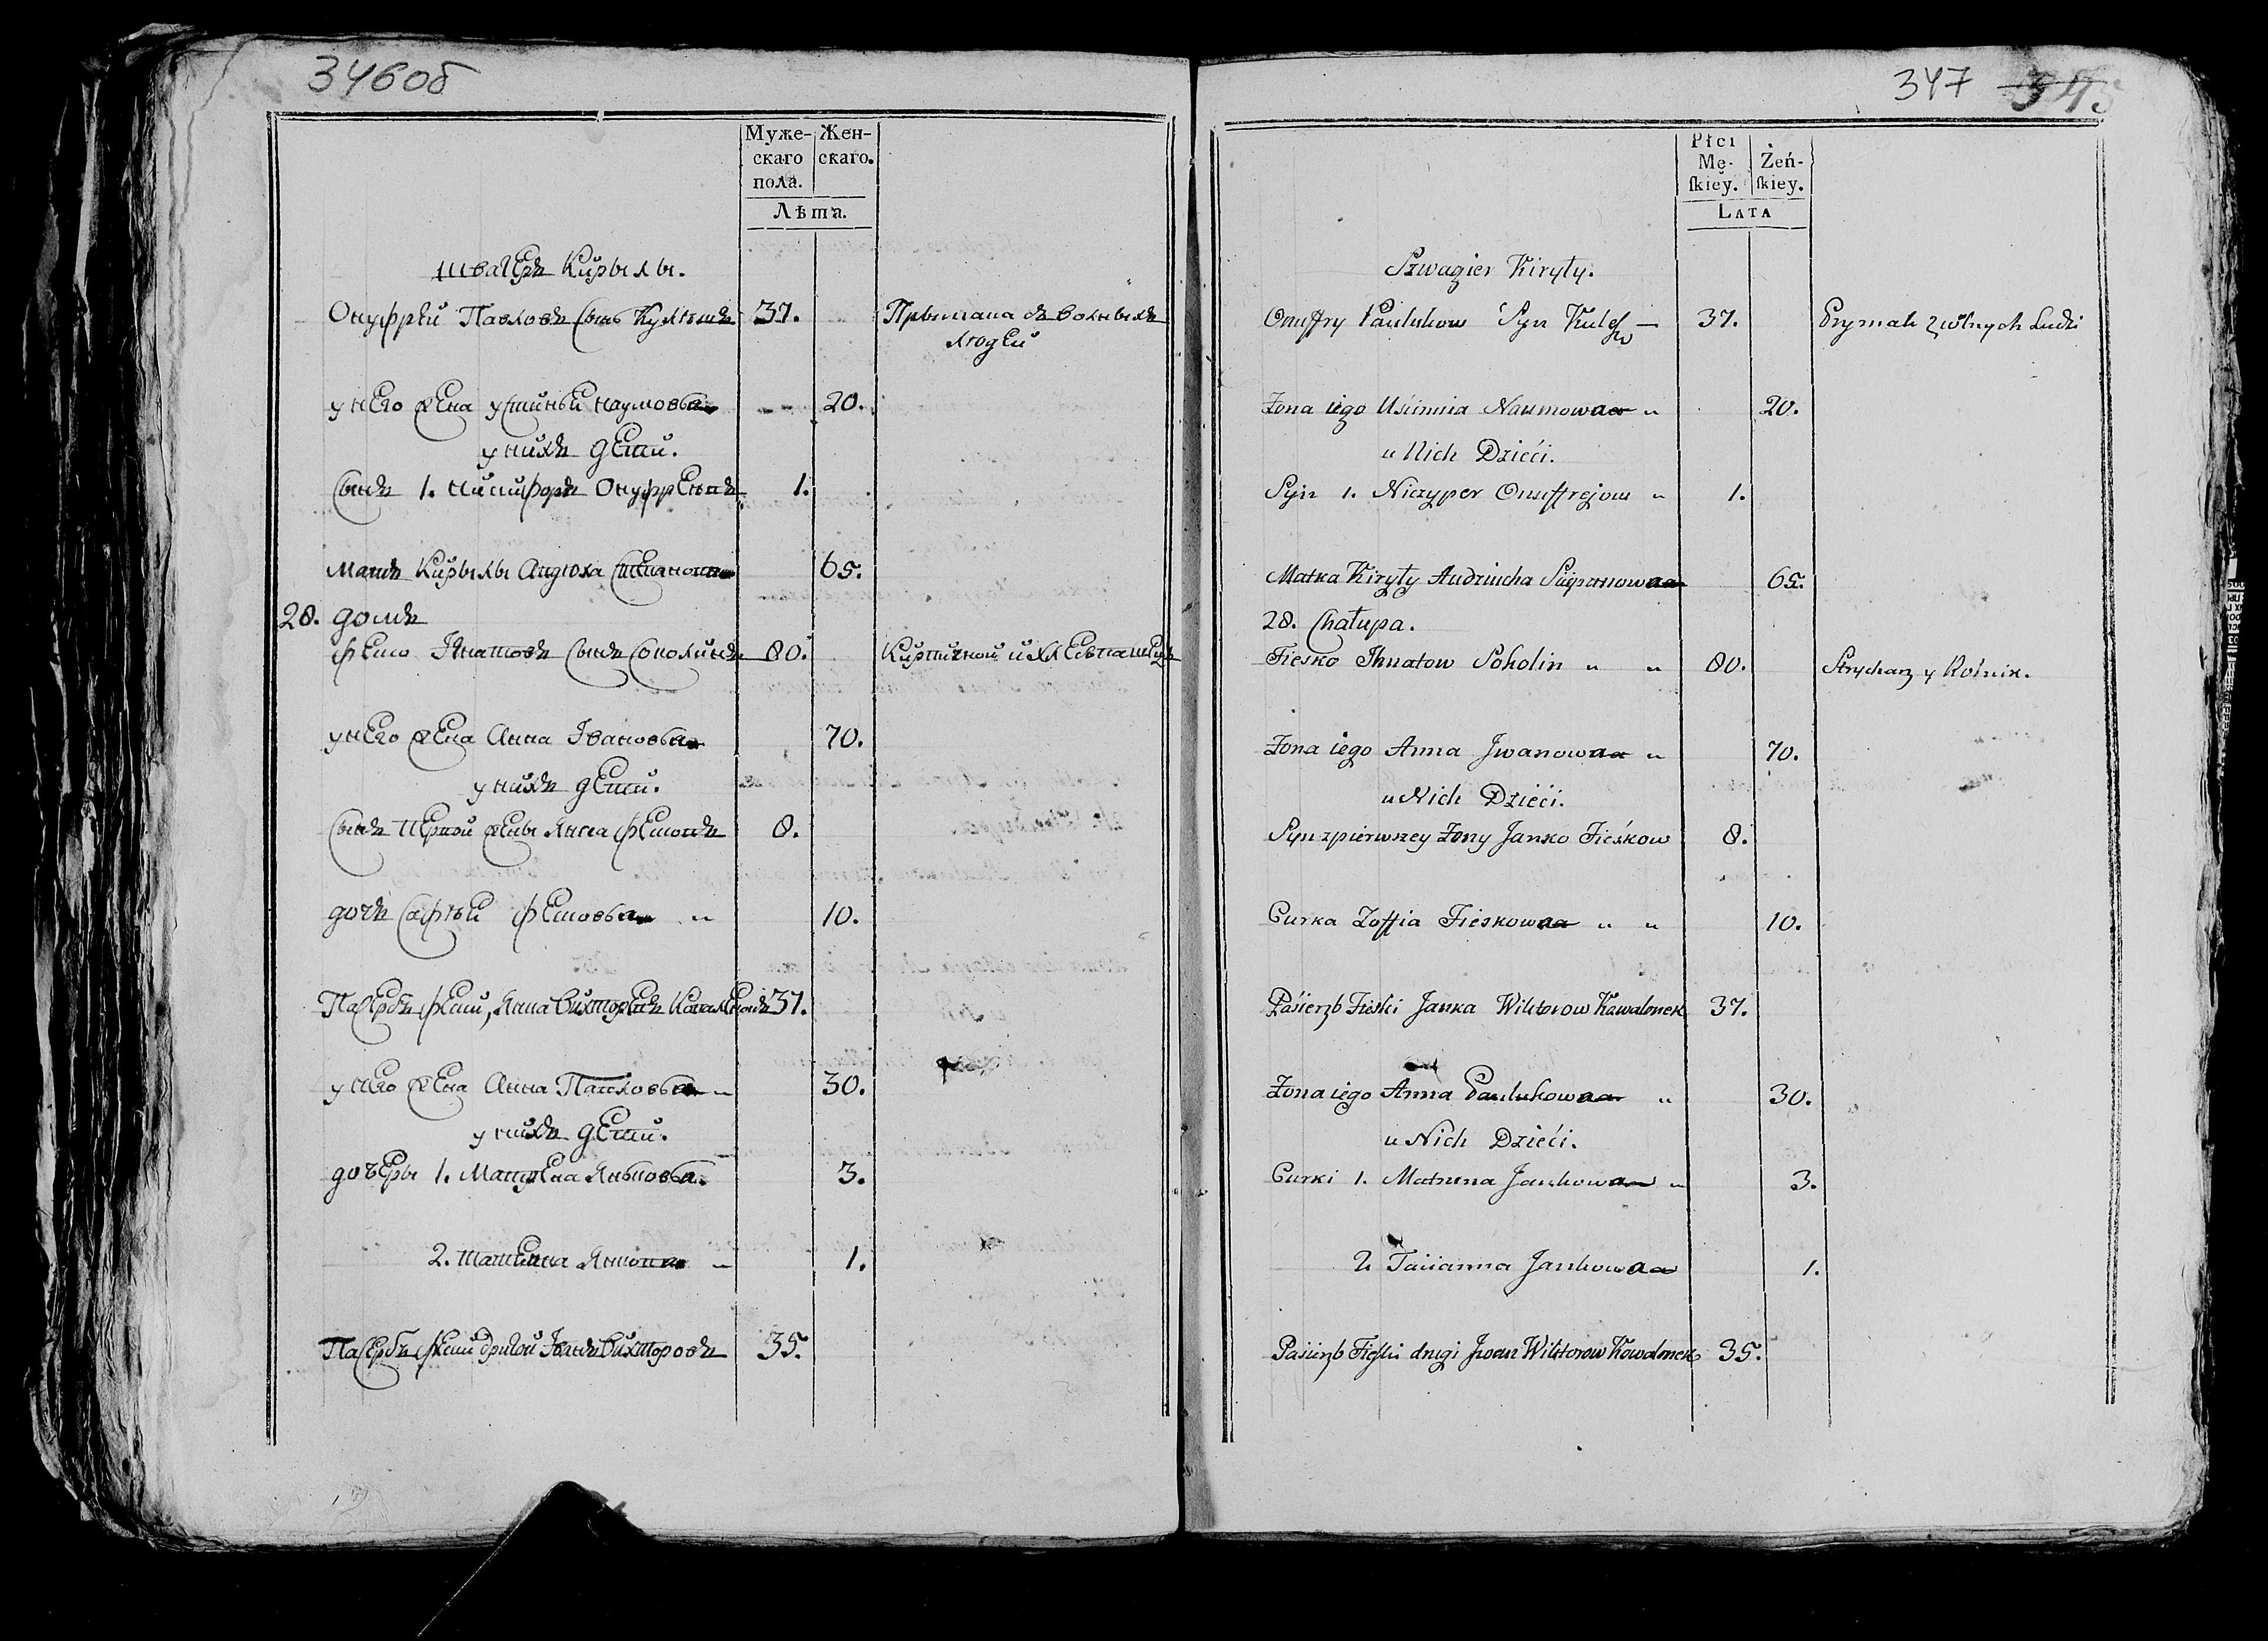 346об
Муже-
скаго
пола.
Жен-
скаго.
Лѣта.
швагеръ Кирылы.
Онуфрей Павловъ сынъ 37. Прымака зъ вольныхъ
людей
у него жена Устинья Наумовна 20.
у нихъ дети.
сынъ 1. Ничипоръ 1.
мать Кирылы Андюха 65.
28. домъ
Феско Игнатовъ сынъ Соколинъ 80.
у него жена Анна Ивановна 70.
у нихъ дети.
сынъ первой жены Янка 8.
дочь Софья 10.
Пасербъ Янка 37.
у него жена Анна Павловна 30.
у нихъ дети.
дочеры 1. Матрена Янковна. 3.
2. Татьяна Янковна 1.
Пасербъ другой Иванъ Викторовъ 35.
347 345
Płci
Mę-
ſkiey.
Żeń-
ſkiey.
Lata
Szwagier Kiryły.
Onuffry Pauluków Syn 37. Prymak z wolnych Ludzi
Żona iego Uścinnia Naumowna 20.
u Nich Dzieći.
Syn 1. Niczyper Onuffrejow 1.
Matka Kiryły Audziucha Sciepanowna 65.
28. Chałupa.
Fiesko Ihnatow Soholin 80. Strycharz y Rolnik.
Żona iego Anna Jwanowna 70.
u Nich Dzieći.
Syn z pierwszey Żony Janko Fieskow 8.
Curka Zoffia Fieskowna 10.
Paśierzb Fieski Janka Wiktorow Kawalonek 37.
Żona iego Anna Paulukowna 30.
u Nich Dzieći.
Curki 1. Matruna Jankowna 3.
2. Tacianna Jankowna 1.
Paśierzb Fieski drugi Jwan Wiktorow Kowalonek 35.